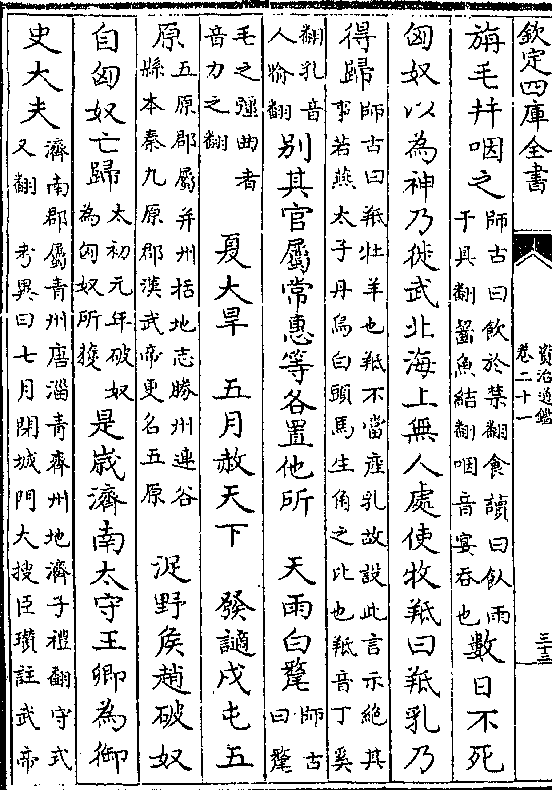 欽定四庫全書
資治通鑑
卷二十一
三十三
旃毛并咽之師古曰飲於禁翻食讀曰飤雨于具翻齧魚結翻咽音宴吞也數日不死
匈奴以為神乃徙武北海上無人處使牧羝曰羝乳乃
得歸師古曰羝牡羊也羝不當產乳故設此言示絕其事若燕太子丹烏白頭馬生角之比也羝音丁奚
翻乳音人喻翻別其官屬常惠等各置他所　天雨白氂師古曰氂
毛之強曲者音力之翻　夏大旱　五月赦天下　發謫戍屯五
原五原郡屬并州括地志勝州連谷縣本秦九原郡漢武帝更名五原　浞野侯趙破奴
自匈奴亡歸太初元年破奴為匈奴所獲　是歲濟南太守王卿為御
史大夫濟南郡屬青州唐淄青齊州地濟子禮翻守式又翻　考異曰七月閉城門大搜臣瓚註武帝